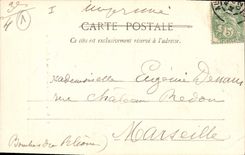 Imprimé
CARTE POSTALE
Ce côté est exclusivement réservé à l'adresse.
Mademoiselle Eugénie
rue Château Redon
Marseille
Bouches du Rhône
5